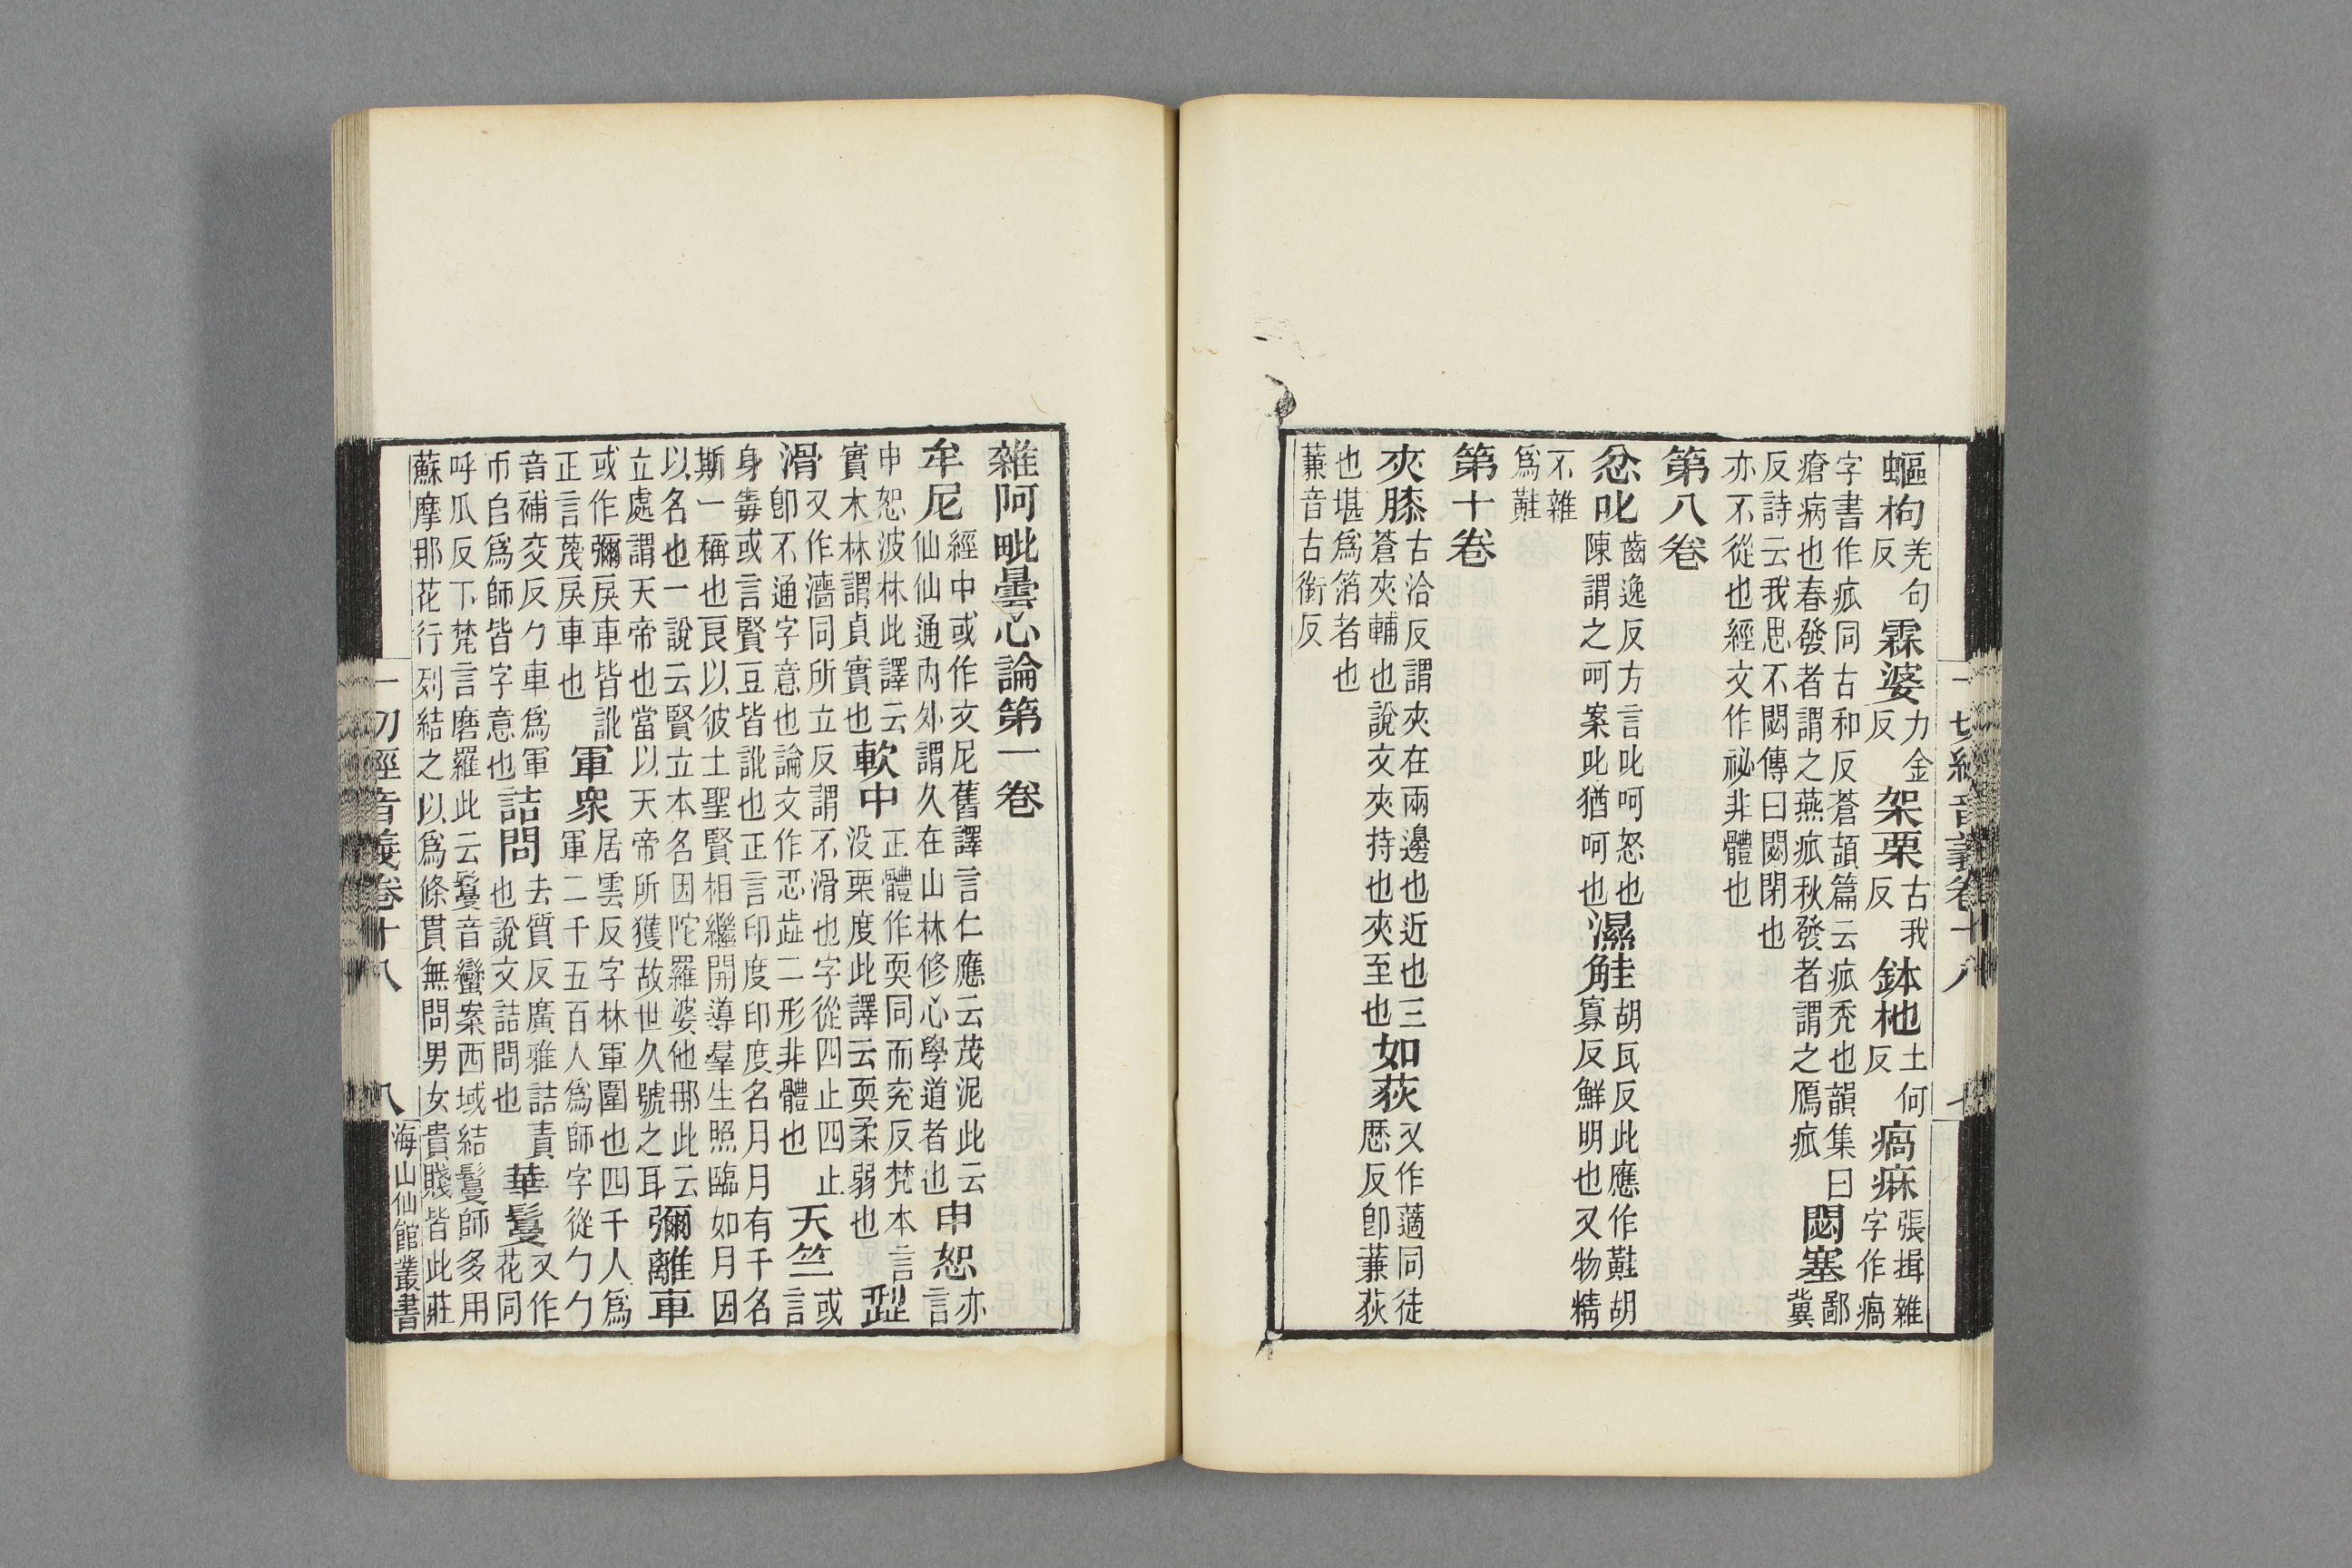 一切經音義卷十八 七
枸羌句反霖婆力金反架栗古我反鉢柂土何反瘑痳張揖雜字作瘑
字書作㽿同古和反蒼頡篇云㽿禿也韻集曰瘡病也春發者謂之燕㽿秋發者謂之鴈㽿閟塞鄙冀
反詩云我思不閟傳曰閟閉也亦不從也經文作祕非體也
第八卷
忿叱齒逸反方言叱呵怒也陳謂之呵案叱猶呵也濕觟胡瓦反此應作黊胡寡反鮮明也又物精
不雜爲黊
第十卷
夾膝古洽反謂夾在兩邊也近也三蒼夾輔也說文夾持也夾至也如荻又作藡同徒歷反卽蒹荻
也堪爲箔者也蒹音古銜反
雜阿毗曇心論第一卷
牟尼經中或作文尼舊譯言仁應云茂泥此云仙仙通內外謂久在山林修心學道者也申恕亦言
申恕波林此譯云實木林謂貞實也軟中正體作耎同而兖反梵本言没栗度此譯云耎柔弱也
滑又作濇同所立反謂不滑也字從四止四止卽不通字意也論文作二形非體也天竺或言
身毒或言賢豆皆訛也正言印度印度名月月有千名斯一稱也良以彼土聖賢相繼開導羣生照臨如月因
以名也一說云賢立本名因陀羅婆他那此云立處謂天帝也當以天帝所獲故世久號之耳彌離車
或作彌戾車皆訛正言蔑戾車也軍衆居雲反字林軍圍也四千人爲軍二千五百人爲師字從勹勹
音補交反勹車爲軍帀𠂤爲師皆字意也詰問去質反廣雅詰責也說文詰問也華鬘又作花同
呼瓜反下梵言磨羅此云鬘音蠻案西域結鬘師多用蘇摩那花行列結之以爲條貫無問男女貴賤皆此莊
一切經音義卷十八 八 海山仙館叢書